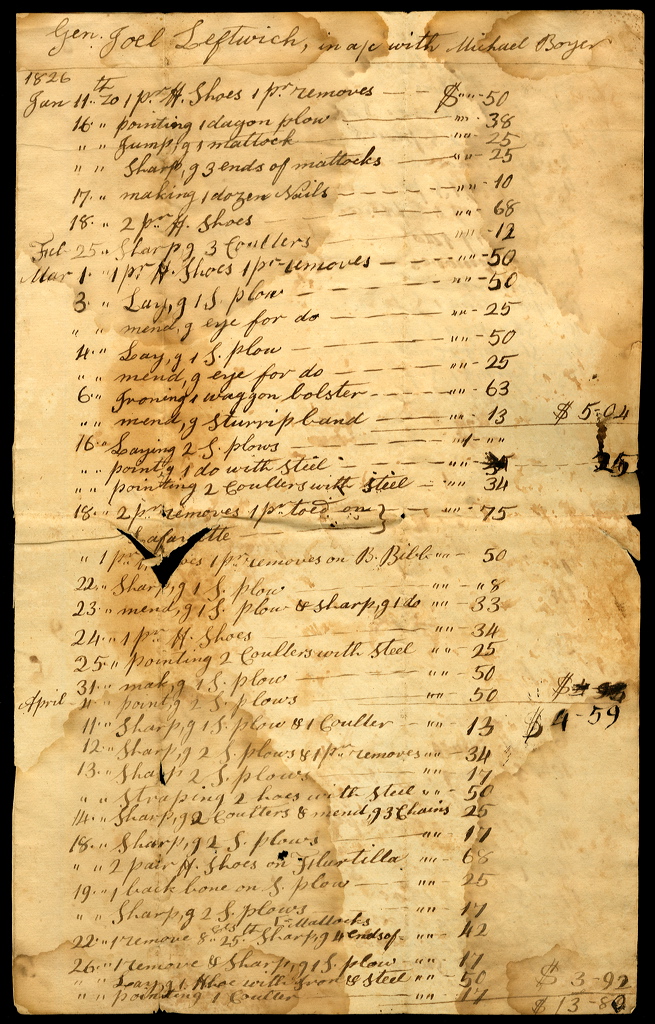 Gen. Joel Leftwich, in a/c with Michael Boyer
1826
Jan 11th To 1 pr. H. Shoes 1 pr. removes $ "" - 50
16 " pointing 1 dagon plow "" - 38
" " Jump,g 1 mattock "" - 25
" " Sharp,g 3 ends of mattocks "" - 25
17 " making 1 dozen Nails "" - 10
18 " 2 pr. H. Shoes "" - 68
Feb 25 " Sharp,g 3 Coulters "" - 12
Mar 1 " 1 pr H. Shoes 1 pr removes "" - 50
3 " Lay,g 1 S. plow "" - 50
" " mend,g eye for do "" - 25
4 " Lay,g 1 S. plow "" - 50
" " mend,g eye for do "" - 25
6 " Ironing 1 waggon bolster "" - 63
" " mend,g Sturripband "" - 13 $ 5-04
16 " Laying 2 S. plows "1 - ""
" " point,g 1 do with Steel ""
" " pointing 2 Coulters with Steel "" 34
18 " 2 pr removes 1 pr. toed on } "" - 75
Lafayette
" 1 pr. H. Shoes 1 pr removes on B. Bibb "" - 50
22 " Sharp,g 1 S. plow "" - "8
23 " mend,g 1 S. plow & sharp,g 1 do "" - 33
24 " 1 pr H. Shoes "" - 34
25 " pointing 2 Coulters with Steel "" - 25
31 " mak,g 1 S. plow "" - 50
April " point,g 2 S. plows "" - 50
11 " Sharp,g 1 S. plow & 1 Coulter "" - 13 $ 4-59
12 " Sharp,g 2 S. plows & 1 pr removes "" - 34
13 " Sharp,g 2 S. plows "" - 17
" " Straping 2 hoes with Steel "" - 50
14 " Sharp,g 2 Coulters & mend,g 3 Chains 25
18 " Sharp,g 2 S. plows "" - 17
" " 2 pair H. Shoes on "" - 68
19 " 1 back bone on S. plow "" - 25
" " Sharp,g 2 S. plows "" - 17
22 " 1 remove & 25th Sharp,g 4 ends of Mattocks "" - 42
26 " 1 remove & Sharp,g 1 S. plow "" - 17
" " Lay,g 1 Hhoe with Iron & Steel "" - 50 $ 3-92
" " pointing 1 Coulter "" - 17 $ 13-80